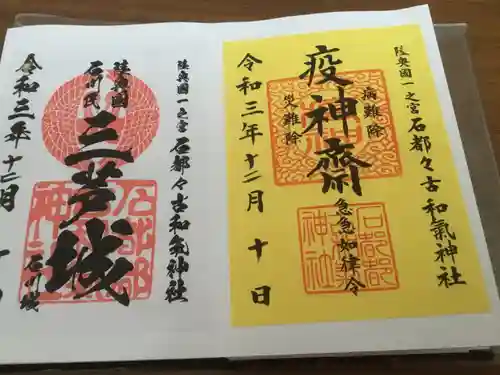 陸奥國一之宮 石都々古和氣神社
病難除
疫神齋
災難除
急急如律令
令和三年十二月十日
陸奥國一之宮 石都々古和氣神社
陸奥國
石川氏
三芦城
石川城
令和三年十二月十
石都都
神社